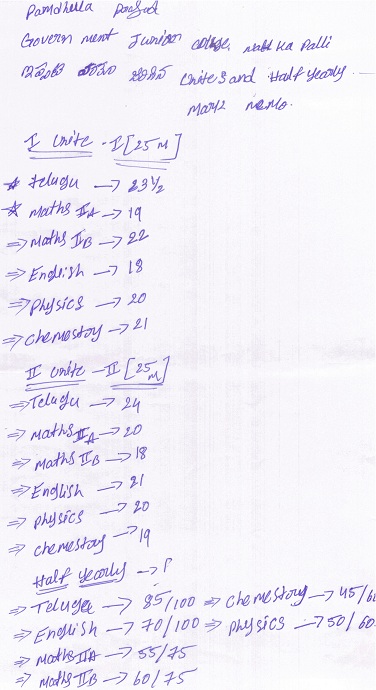 Govern ment Junior college,
Units and Half yearly
marks memo.
I unite - I [25 M]
Telugu → 23 1/2
maths IIA → 19
⇒ maths IIB → 22
⇒ English → 18
⇒ physics → 20
⇒ chemestoy → 21
II unite - II [25 M]
⇒ Telugu → 24
⇒ maths IIA → 20
⇒ maths IIB → 18
⇒ English → 21
⇒ physics → 20
⇒ chemestoy → 19
Half yearly →
⇒ Telugu → 85/100 ⇒ chemestoy → 45/60
⇒ English → 70/100 ⇒ physics → 50/60
⇒ maths IIA → 55/75
⇒ maths IIB → 60/75